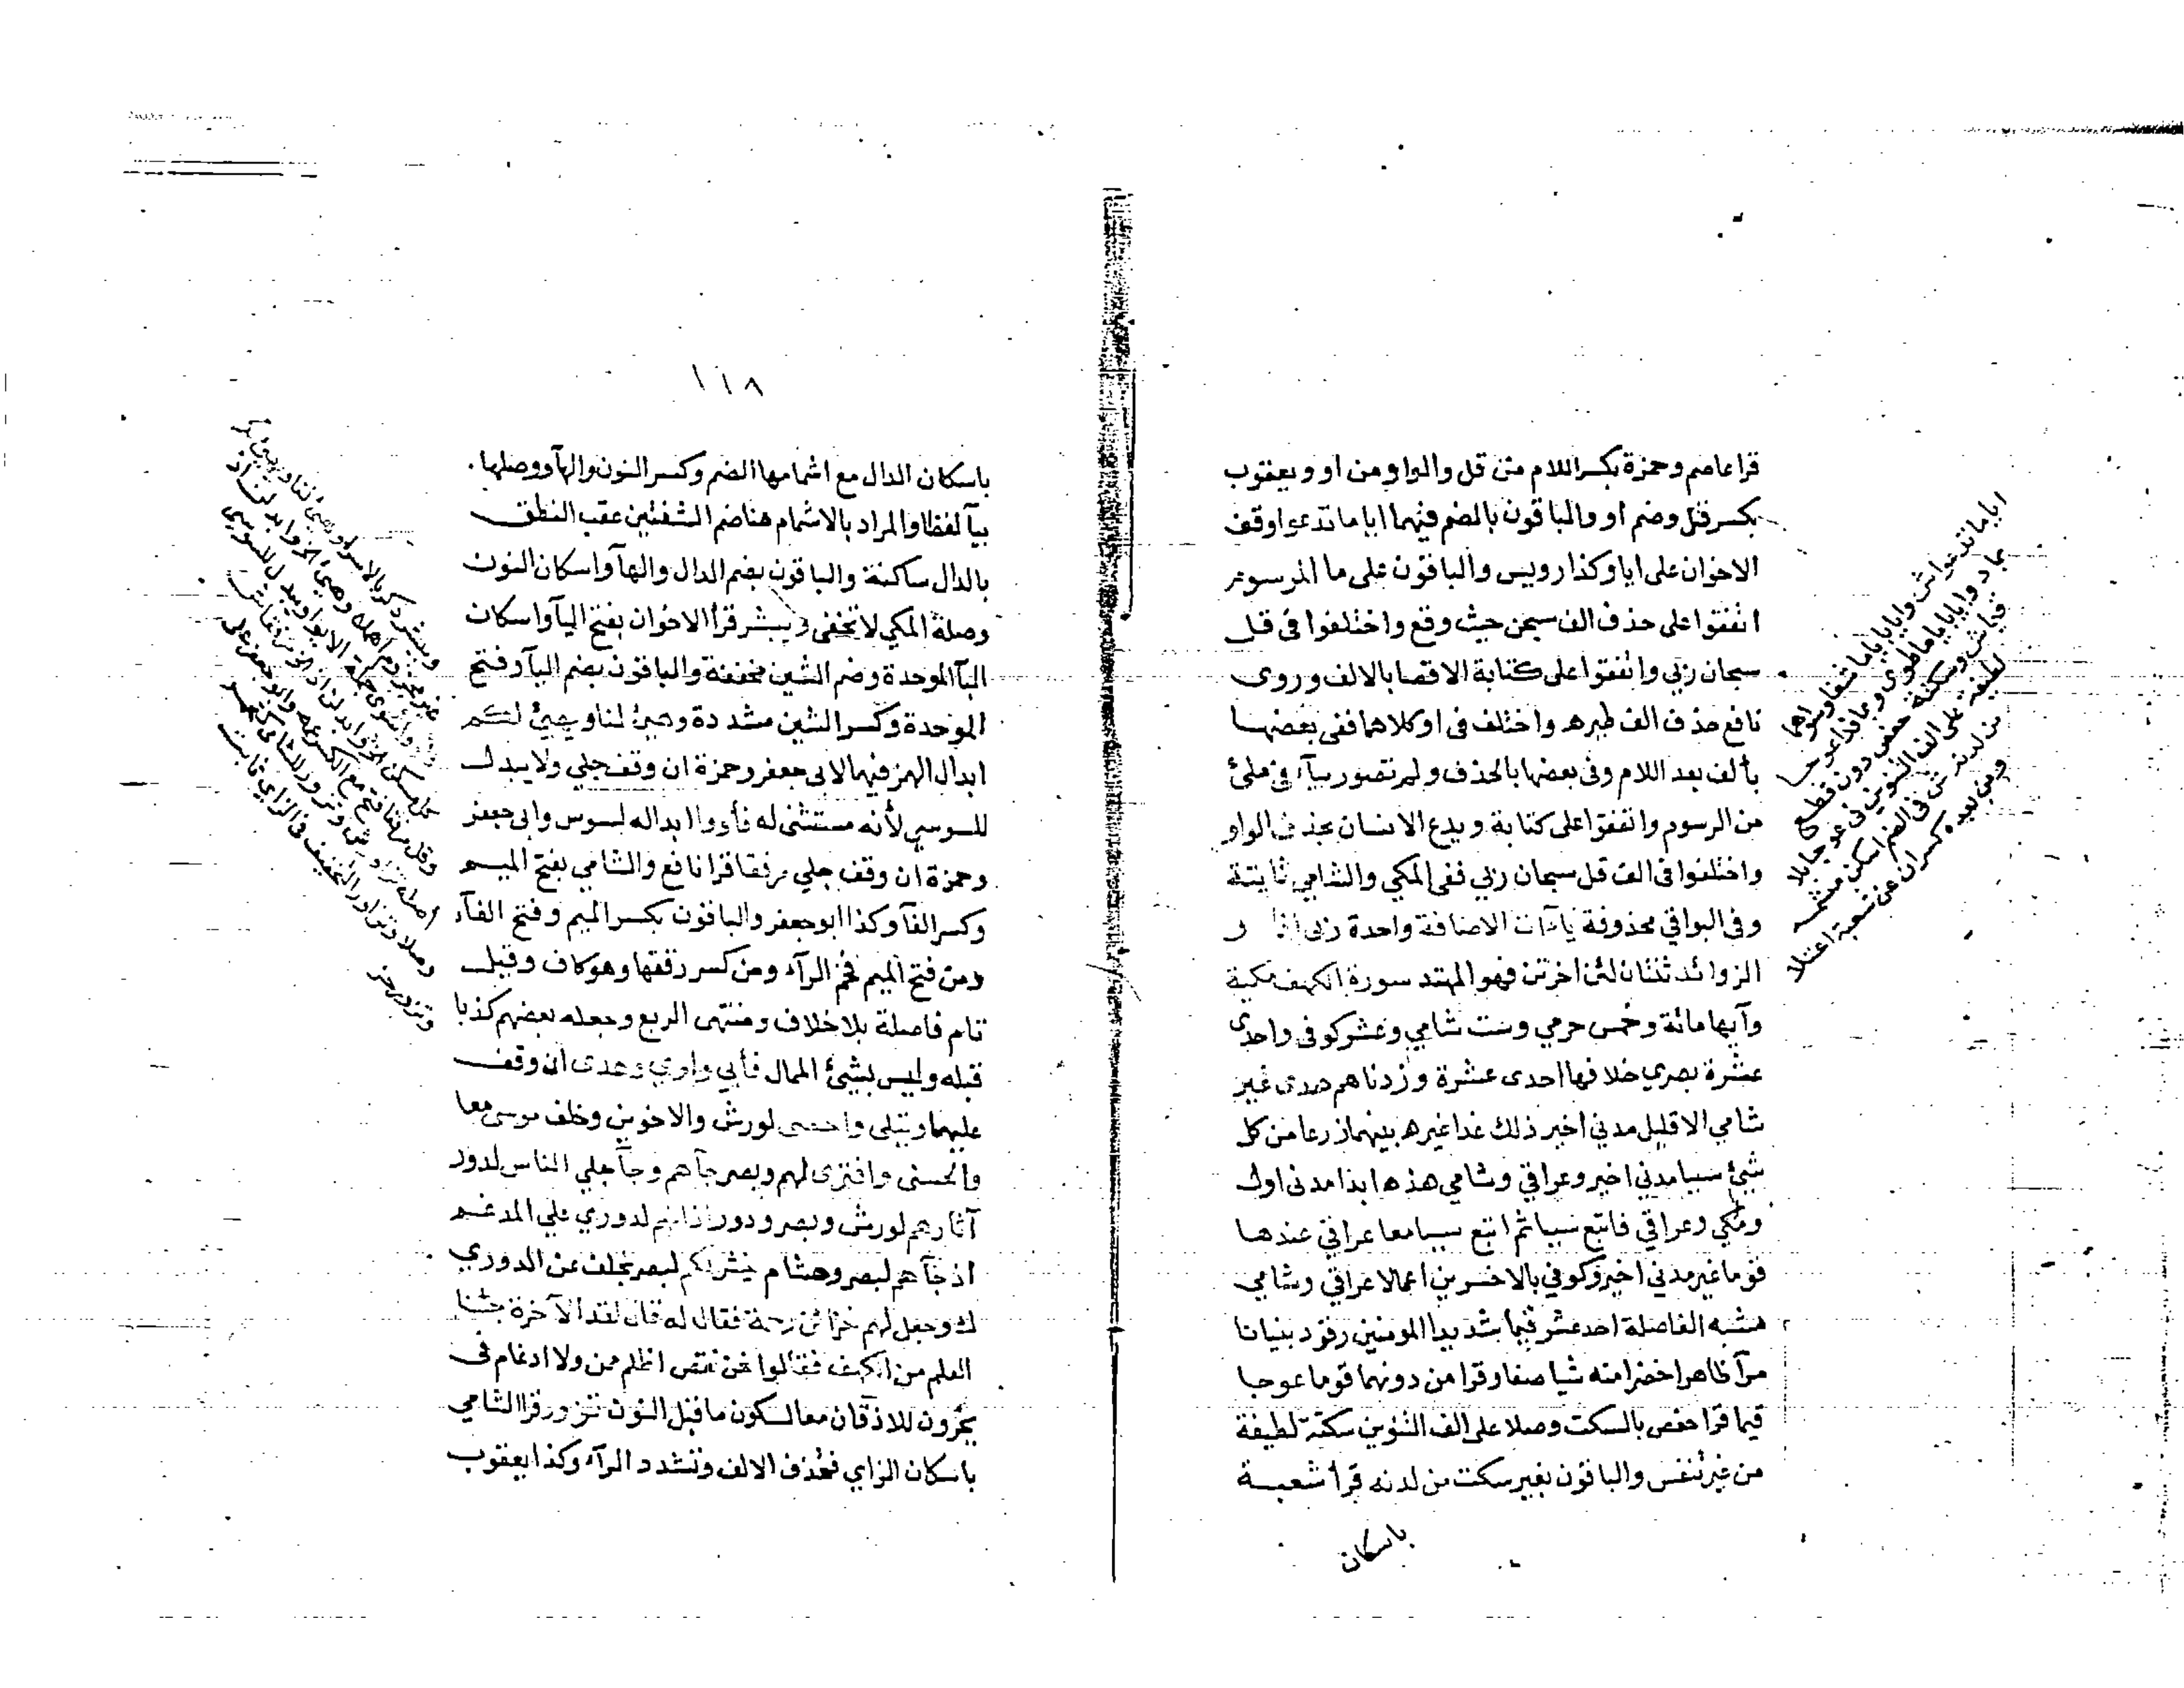 قرا عاصم وحمزة بكسر اللام من قل والواو من او ويعقوب
بكسر قل وضم او والباقون بالضم فيهما ايا ما تدعوا وقف
الاخوان على ايا وكذا رويس والباقون على ما المرسوم
اتفقوا على حذف الف سبحن حيث وقع واختلفوا في قل
سبحان ربي واتفقوا على كتابة الاقصا بالالف وروى
نافع حذف الف طيره واختلف في او كلاهما ففي بعضها
بألف بعد اللام وفي بعضها بالحذف ولم تصور بيآء في شئ
من الرسوم واتفقوا على كتابة ويدع الانسان بحذف الواو
واختلفوا في الف قل سبحان ربي ففي المكي والشامي ثابتة
وفي البواقي محذوفة ياءآت الاضافة واحدة ربي اذا
الزوائد ثنتان لئن اخرتن فهو المهتد سورة الكهف مكية
وآيها مائة وخمس حرمي وست شامي وعشر كوفي واحدى
عشرة بصري خلافها احدى عشرة وزدناهم هدى غير
شامي الا قليل مدني اخير ذلك غدا غيره بينهما زرعا من كل
شيئ سببا مدني اخير وعراقي وشامي هذه ابدا مدني اول
ومكي وعراقي فاتبع سببا ثم اتبع سببا معا عراقي عندها
قوما غير مدني اخير وكوفي بالاخسرين اعمالا عراقي وشامي
مشبه الفاصلة احد عشر قيما شديدا المومنين رقود بنيانا
مرآء ظاهرا خضرا منه شيا صفا وقرا من دونهما قوما عوجا
قيما قرا حفص بالسكت وصلا على الف التنوين سكتة لطيفة
من غير تنفس والباقون بغير سكت من لدنه قرأ شعبة
باسكان
ايا ما تدعوا
ومن بعده كسران عن شعبة اعتلا
١١٨
باسكان الدال مع اشمامها الضم وكسر النون والهآء ووصلها
بيآء لفظا والمراد بالاشمام هنا ضم الشفتين عقب النطق
بالدال ساكنة والباقون بضم الدال والهآء واسكان النون
وصلة المكي لا تخفى ويبشر قرأ الاخوان بفتح اليآء واسكان
البآء الموحدة وضم الشين مخففة والباقون بضم اليآء وفتح
الموحدة وكسر الشين مشددة وهيئ لنا ويهيئ لكم
ابدال الهمز فيهما لابي جعفر وحمزة ان وقف جلي ولا يبدل
للسوسي لأنه مستثنى له فأووا ابداله لسوس وابي جعفر
وحمزة ان وقف جلي مرفقا قرا نافع والشامي بفتح الميم
وكسر الفآء وكذا ابو جعفر والباقون بكسر الميم وفتح الفآء
ومن فتح الميم فخم الرآء ومن كسر رققها وهو كاف وقيل
تام فاصلة بلا خلاف ومنتهى الربع وجعله بعضهم كذبا
قبله وليس بشيئ الممال فأبي وأوي وهدى ان وقف
عليهما ويتلى واحصى لورش والاخوين وخلف موسى معا
والحسنى وافترى لهم وبصر جآءهم وجآء جلي الناس لدور
آثارهم لورش وبصر ودور آذانهم لدوري علي المدغم
اذ جآءهم لبصر وهشام ينشر لكم لبصر بخلف عن الدوري
ك وجعل لهم خزائن رحمة فقال له قال لقد الآخرة جئنا
العلم من الكهف فقالوا نحن نقص اظلم ممن ولا ادغام في
يخرون للاذقان معا لسكون ما قبل النون تزور قرا الشامي
باسكان الزاي فحذف الالف وتشدد الرآء وكذا يعقوب